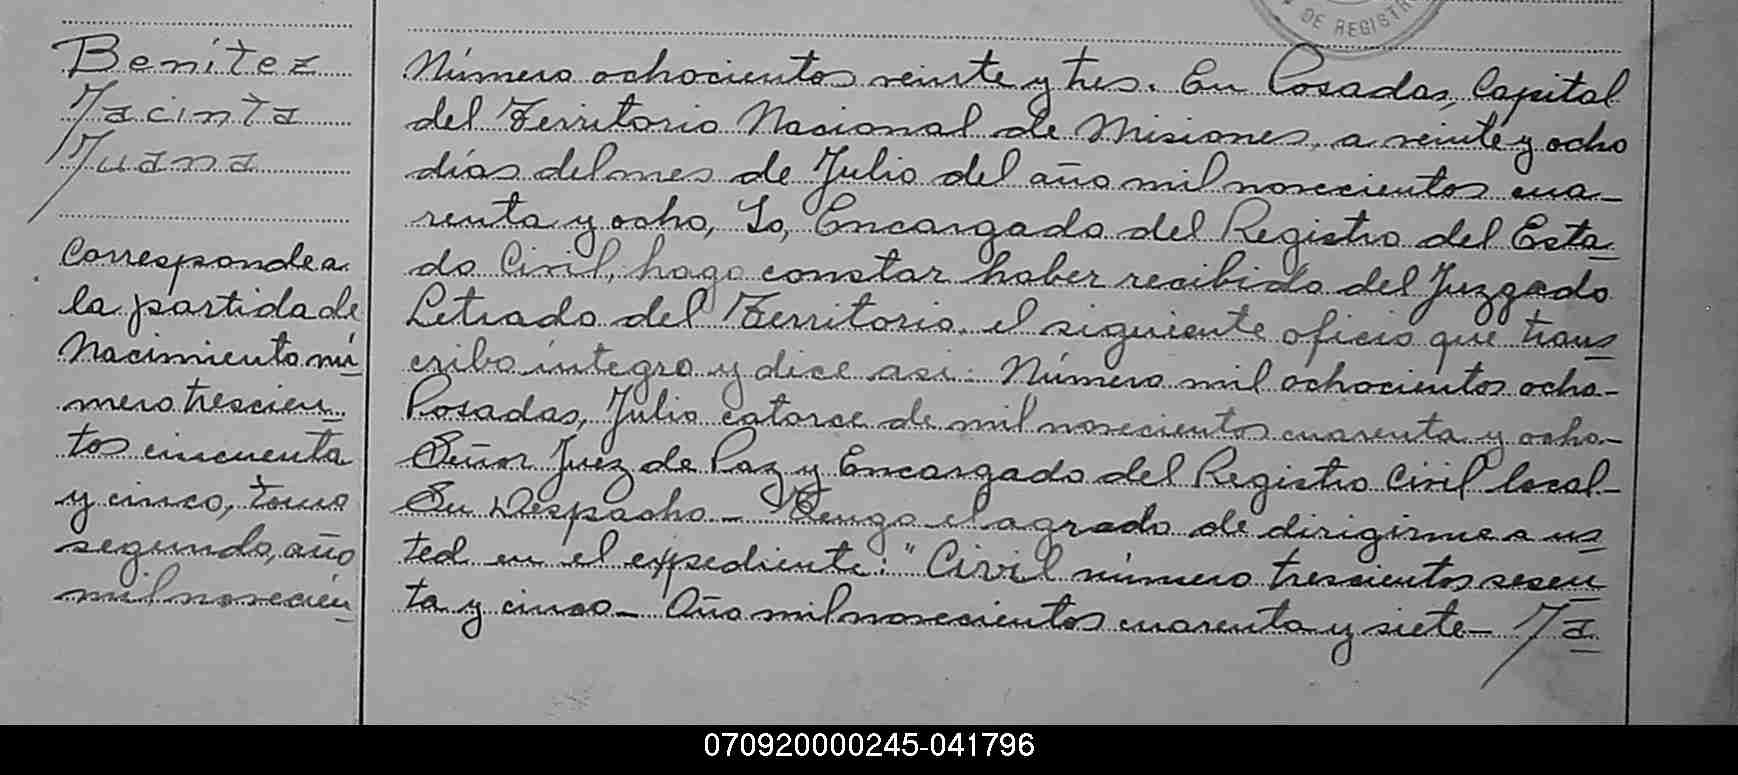 DE REGISTR
Benítez
Jacinta
Juana
Corresponde a
la partida de
Nacimiento nú
mero trescien
tos cincuenta
y cinco, tomo
segundo, año
mil novecien
Número ochocientos veinte y tres. En Posadas, Capital
del Territorio Nacional de Misiones, a veinte y ocho
días del mes de Julio del año mil novecientos cua-
renta y ocho, Yo, Encargado del Registro del Esta
do Civil, hago constar haber recibido del Juzgado
Letrado del Territorio, el siguiente oficio que trans
cribo íntegro y dice así: Número mil ochocientos ocho-
Posadas, Julio catorce de mil novecientos cuarenta y ocho-
Señor Juez de Paz y Encargado del Registro Civil local-
Su Despacho- Tengo el agrado de dirigirme a us
ted en el expediente: "Civil número trescientos sesen
ta y cinco- Año mil novecientos cuarenta y siete- Ja
070920000245-041796